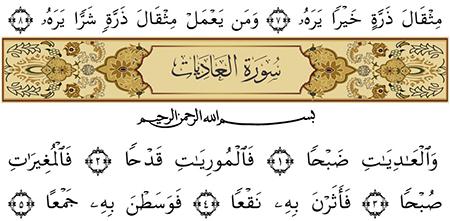 مِثْقَالَ ذَرَّةٍ خَيْرًا يَرَهُۥ ﴿٧﴾ وَمَن يَعْمَلْ مِثْقَالَ ذَرَّةٍ شَرًّا يَرَهُۥ ﴿٨﴾
سُورَةُ العَادِيَات
بسم الله الرحمن الرحيم
وَالْعَـٰدِيَـٰتِ ضَبْحًا ﴿١﴾ فَالْمُورِيَـٰتِ قَدْحًا ﴿٢﴾ فَالْمُغِيرَٰتِ
صُبْحًا ﴿٣﴾ فَأَثَرْنَ بِهِۦ نَقْعًا ﴿٤﴾ فَوَسَطْنَ بِهِۦ جَمْعًا ﴿٥﴾